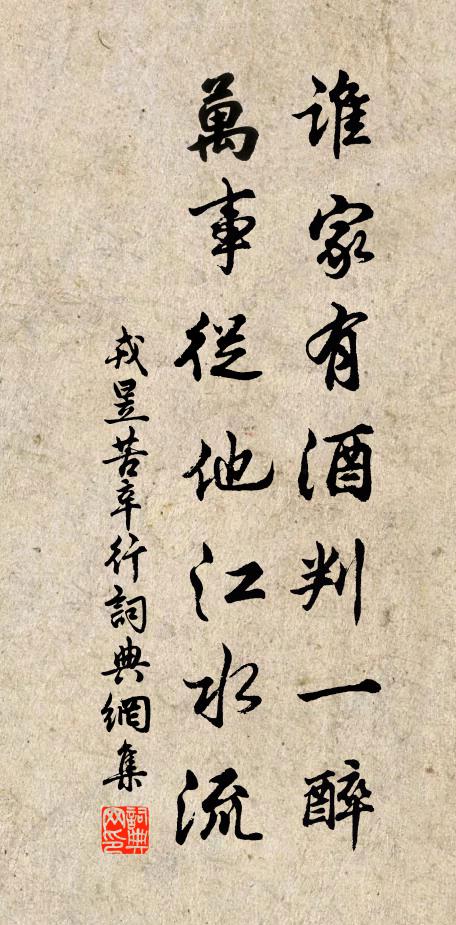 誰家有酒判一醉
萬事從他江水流
戎昱苦辛行詞典網集
詞典网印